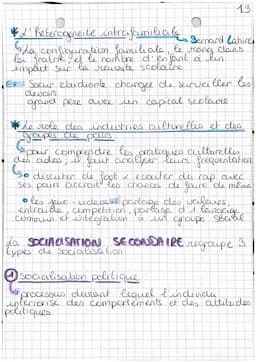 13
* L'hétérogénéité intrafamiliale → Bernard Lahire
↳ La configuration familiale, le rang dans
la fratrie, et le nombre d'enfant a un
impact sur la réussite scolaire.
Ex: Soeur étudiante chargé de surveiller les
devoirs
grand père avec un capital scolaire
* Le rôle des industries culturelles et des
groupes de pairs
↳ pour comprendre les pratiques culturelles
des ados, il faut analyser leurs fréquentations
↳ • discuter de foot & écouter du rap avec
ses pairs accroît les chances de faire de même
• les jeux-vidéos = partage des valeurs,
entraide, compétition, partage d'1 langage
commun et intégration à un groupe social
La SOCIALISATION SECONDAIRE regroupe 3
types de socialisation:
1 socialisation politique
↳ processus durant lequel l'individu
intériorise des comportements et des attitudes
politiques